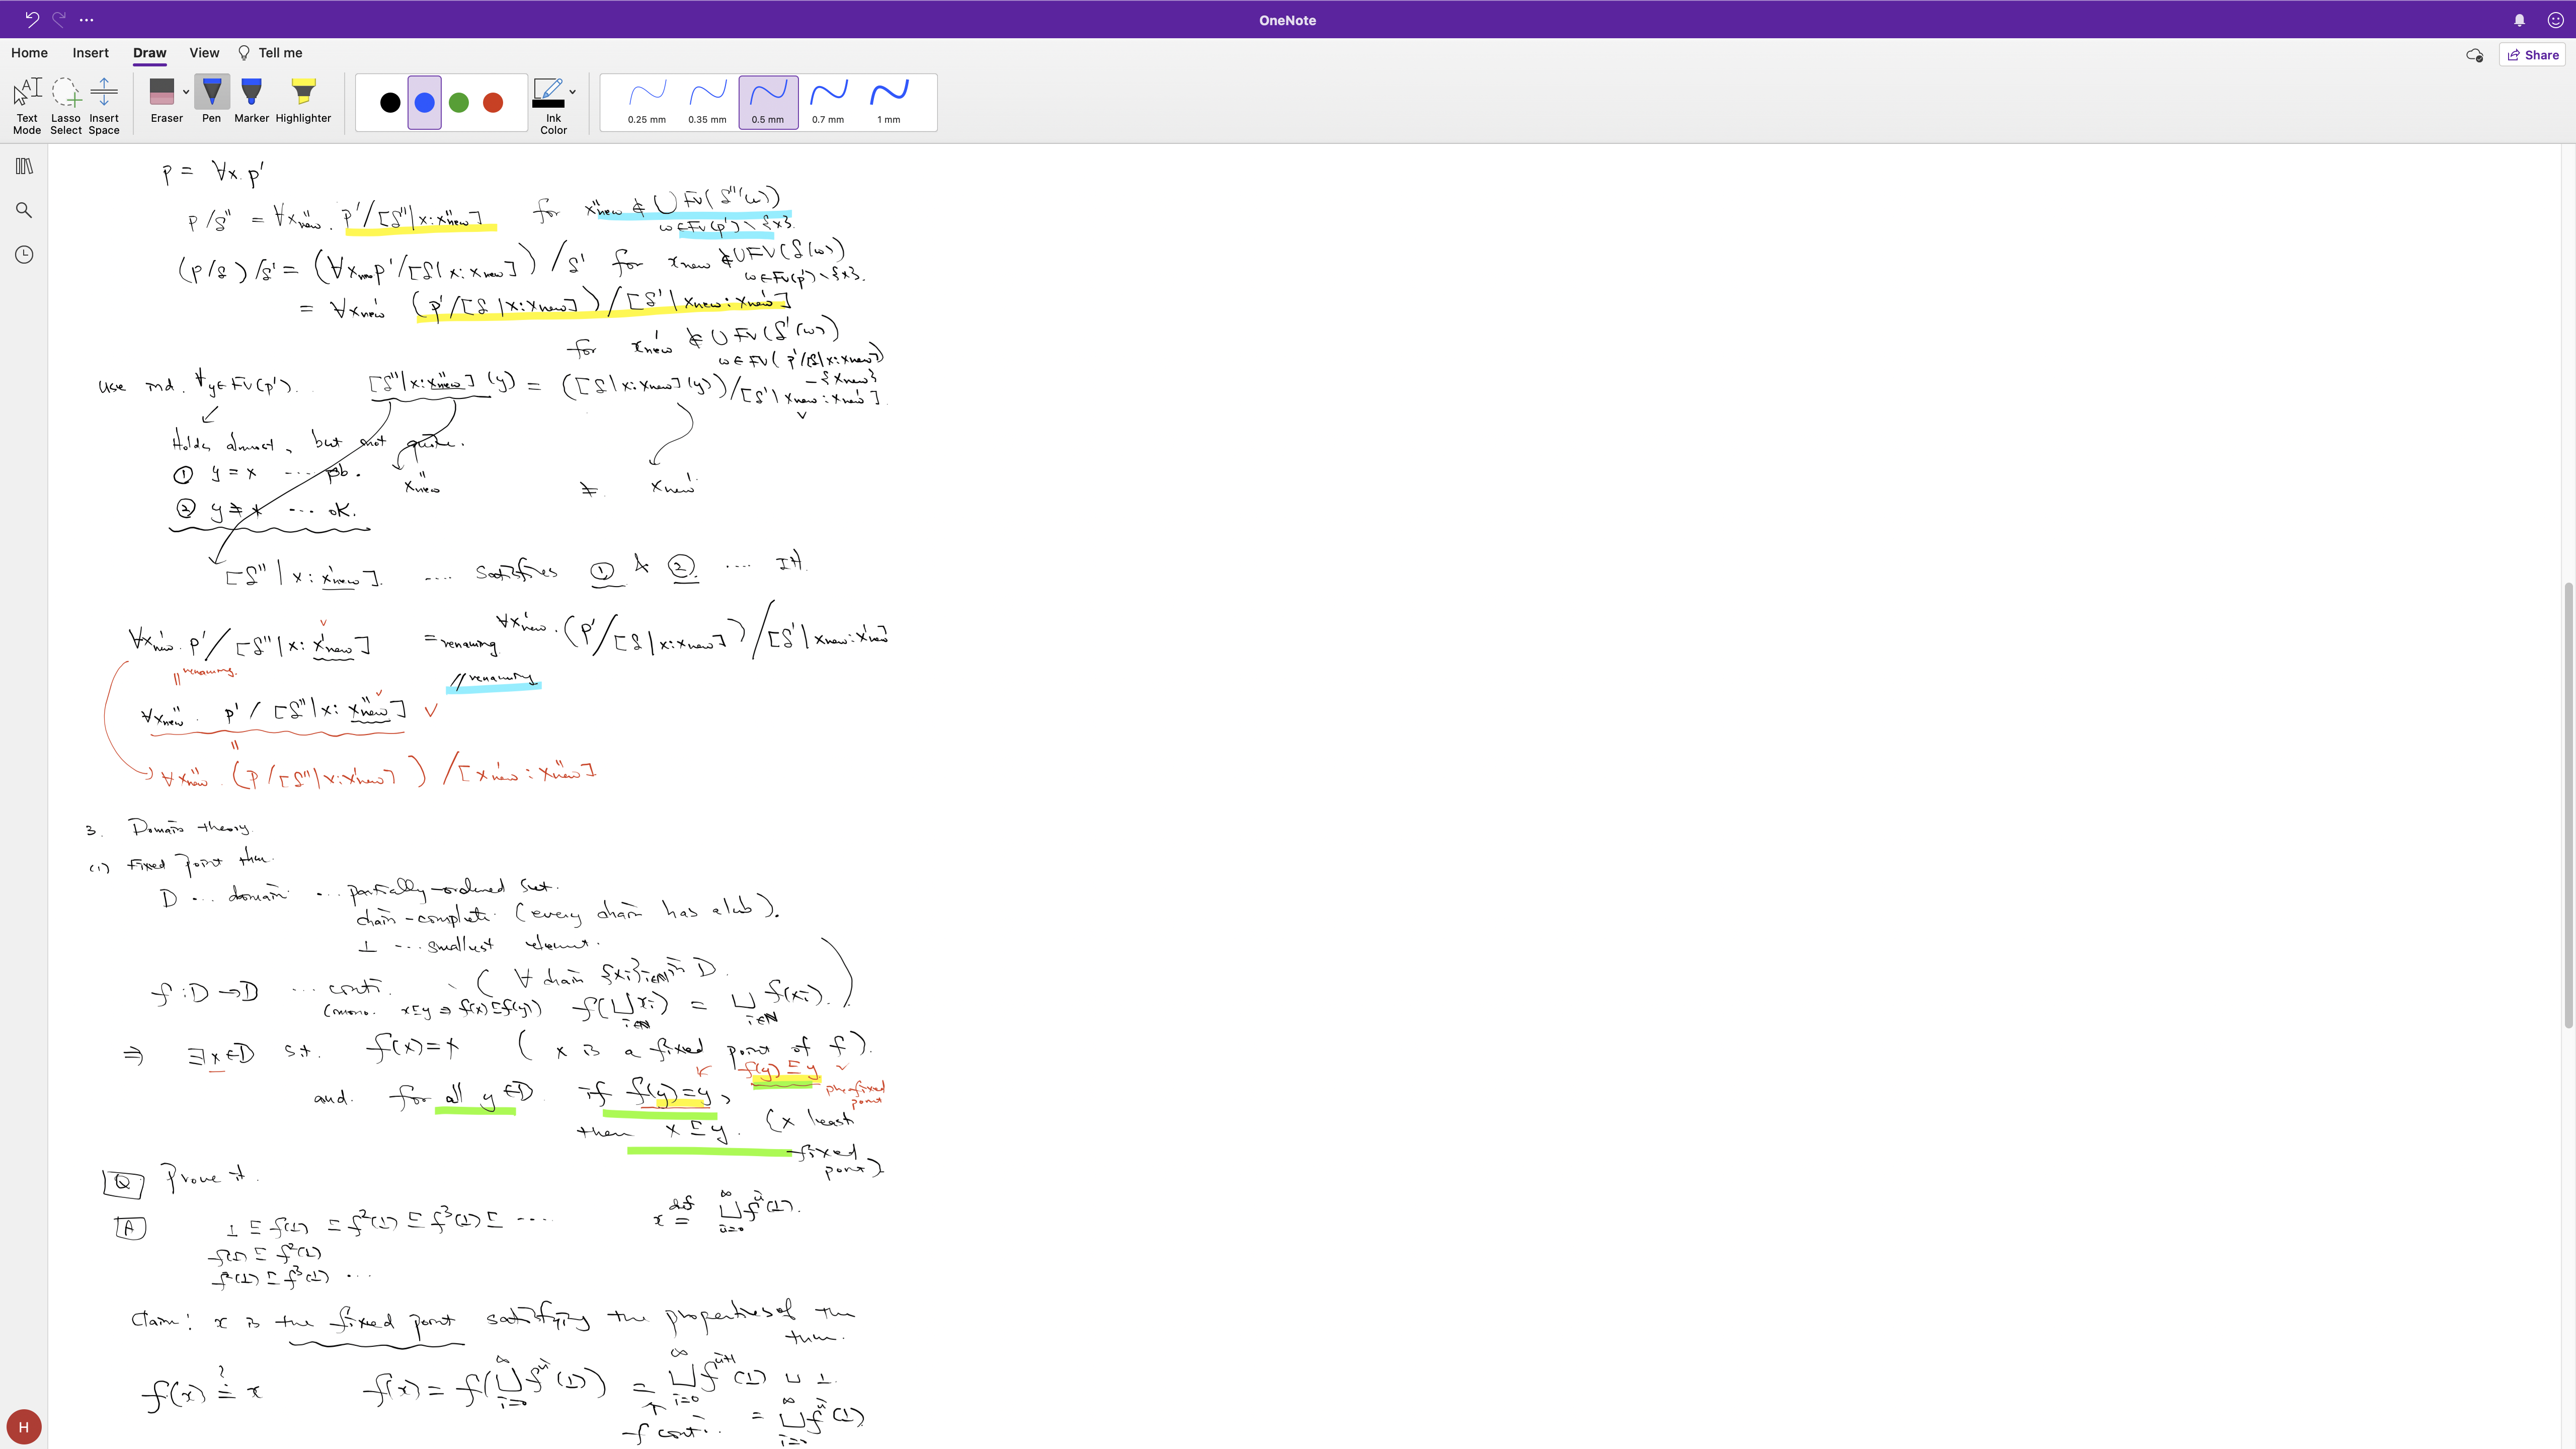 OneNote
Home Insert Draw View Tell me
Share
Text Mode
Lasso Select
Insert Space
Eraser
Pen
Marker
Highlighter
Ink Color
0.25 mm
0.35 mm
0.5 mm
0.7 mm
1 mm
p = ∀x. p'
p/δ'' = ∀x''new. p'/[δ''|x:x''new] for x''new ∉ ∪ FV(δ''(w))
w∈FV(p')\{x}.
(p/δ)/δ' = (∀xnew p'/[δ|x:xnew])/δ' for xnew ∉ ∪FV(δ(w))
w∈FV(p')\{x}.
= ∀x'new (p'/[δ|x:xnew])/[δ'|xnew:x'new]
for x'new ∉ ∪ FV(δ'(w))
w∈FV(p'/[δ|x:xnew])
-{xnew}
use ind. ∀y∈FV(p'). [δ''|x:x''new](y) = ([δ|x:xnew](y))/[δ'|xnew:x'new].
Holds almost, but not quite.
① y = x ... pb.
x''new ≠ x'new
② y ≠ x ... ok.
[δ''|x:x'new]. .... satisfies ① & ②. .... IH.
∀x'new. p'/[δ''|x:x'new] =renaming ∀x'new.(p'/[δ|x:xnew])/[δ'|xnew:x'new]
|| renaming.
// renaming
∀x''new. p'/[δ''|x:x''new] ✓
||
∀x''new. (p/[δ''|x:x'new])/[x'new:x''new]
3. Domain theory.
(1) Fixed point thm.
D ... domain ... partially-ordered set.
chain-complete (every chain has a lub).
⊥ ... smallest element.
f:D→D ... conti. (∀ chain {xi}i∈N in D.
(mono. x⊑y ⇒ f(x)⊑f(y)) f(⊔xi) = ⊔f(xi).)
i∈N i∈N
⇒ ∃x∈D s.t. f(x)=x (x is a fixed point of f).
f(y) ⊑ y
and. for all y∈D if f(y)=y,
pre-fixed point
then x⊑y. (x least
fixed
point)
Q Prove it.
A ⊥ ⊑ f(⊥) ⊑ f²(⊥) ⊑ f³(⊥) ⊑ ....
x =def ⊔∞i=0 fⁱ(⊥).
f(⊥) ⊑ f²(⊥)
f²(⊥) ⊑ f³(⊥) ...
Claim: x is the fixed point satisfying the properties of the
thm.
f(x) =? x f(x) = f(⊔∞i=0 fⁱ(⊥)) = ⊔∞i=0 fⁱ⁺¹(⊥) ⊔ ⊥.
↑
f conti. = ⊔∞i=0 fⁱ(⊥)
H